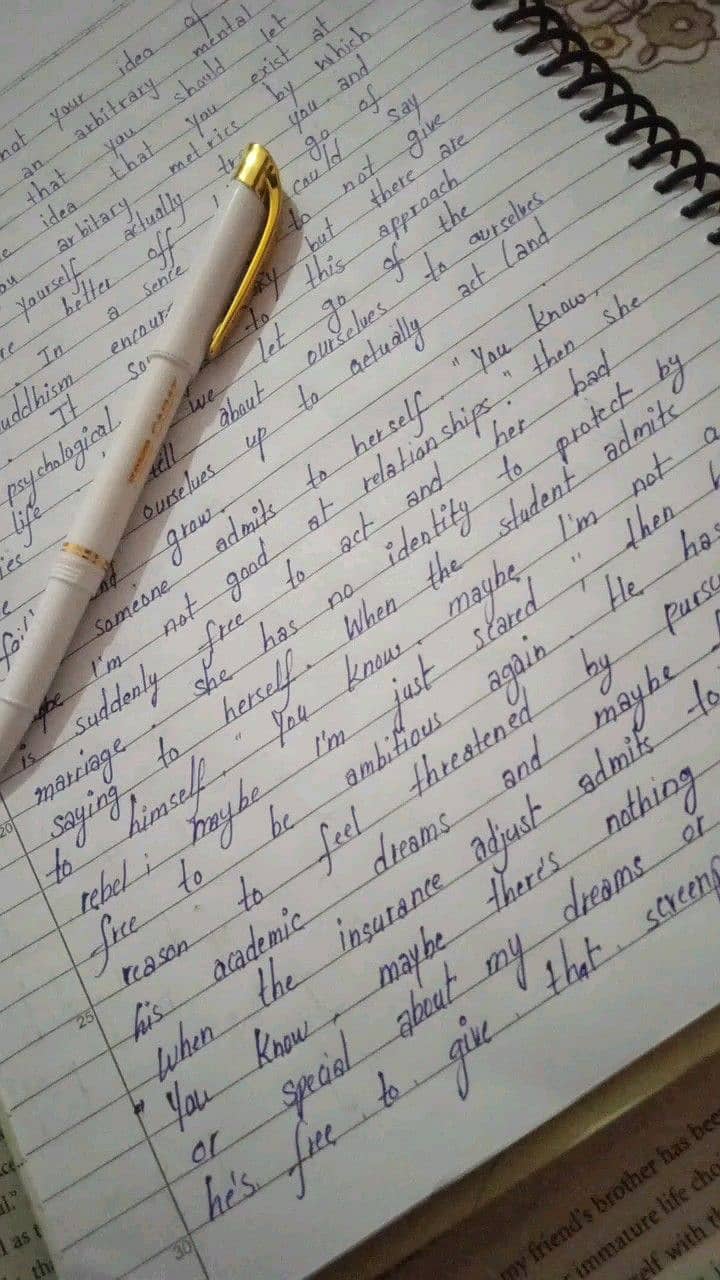 not your idea of
an arbitrary mental
that you should let
idea that you exist at
arbitary metrics by which
yourself actually you and
better off go of
In a sence I could say
uddhism encour to not give
It but there are
psychological to this approach
life we let go of the
tell about ourselves to ourselves
ourselves up to actually act (and
grow.
someone admits to herself, "You know,
I'm not good at relationships." then she
is suddenly free to act and her bad
marriage. she has no identity to protect by
saying to herself. When the student admits
to himself, "You know, maybe I'm not a
rebel; maybe I'm just scared," then
free to be ambitious again. He has
reason to feel threatened by pursu
his academic dreams and maybe
When the insurance adjust admits to
"You know, maybe there's nothing
or special about my dreams or
he's free to give that screenp
20
25
30
my friend's brother has bee
immature life choi
elf with th